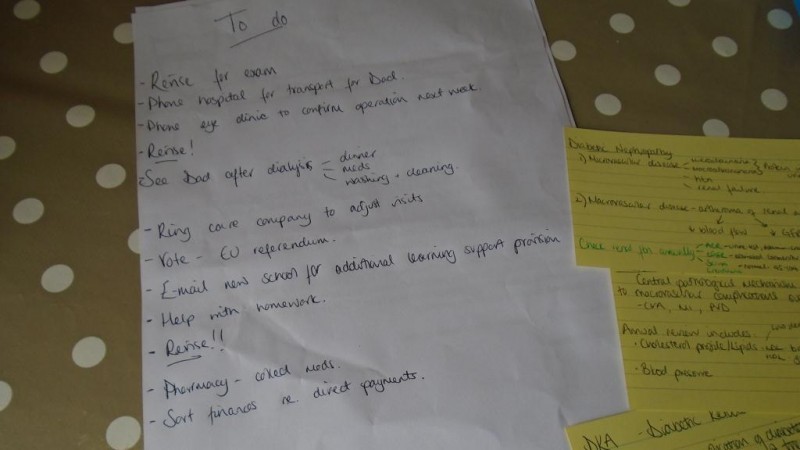 To do
- Revise for exam
- Phone hospital for transport for Dad.
- Phone eye clinic to confirm operation next week.
- Revise!
- See Dad after dialysis - dinner
- meds
- washing + cleaning.
- Ring care company to adjust visits
- Vote - EU referendum.
- E-mail new school for additional learning support provision
- Help with homework.
- Revise!!
- Pharmacy - collect meds.
- Sort finances re. direct payments.
Diabetic Nephropathy
1) Microvascular disease
renal failure
2) Macrovascular disease - of renal
↓ blood flow ↓ GFR
Check renal fxn annually
Central pathological mechanism
to macrovascular complications
- CVA, MI, PVD
Annual review includes
- Cholesterol profile/lipids
- Blood pressure
DKA - Diabetic